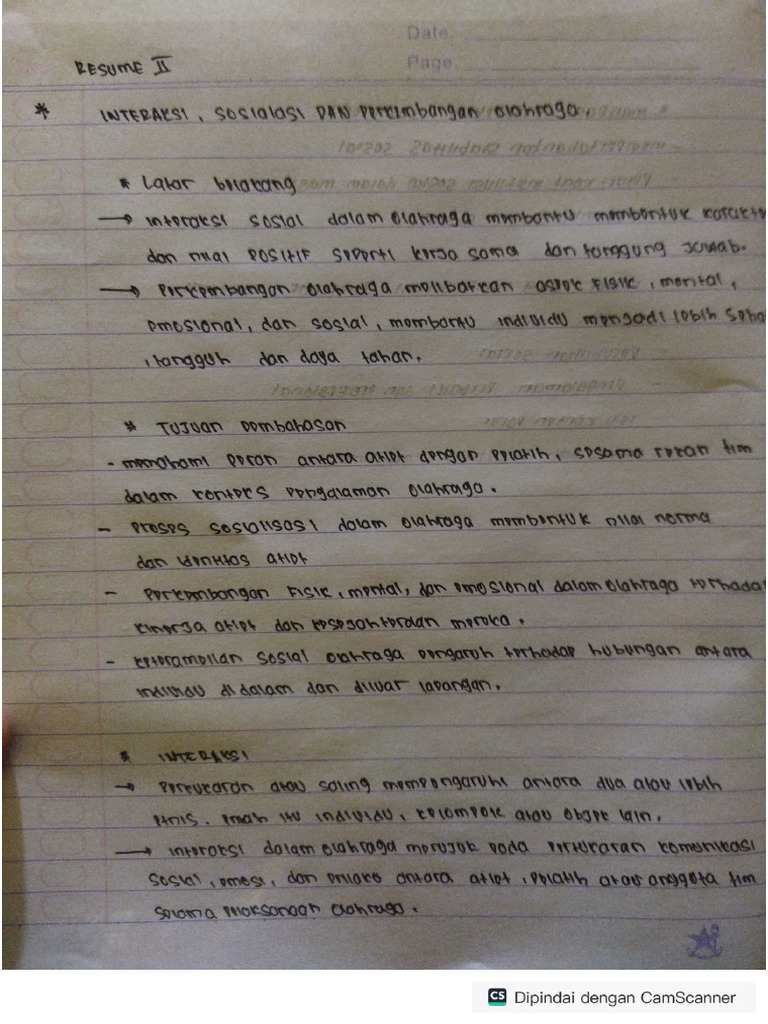 Date.
Page.
RESUME II
* INTERAKSI, SOSIALASI DAN Perkembangan olahraga.
* Latar belakang
→ interaksi sosial dalam olahraga membantu membentuk karakte
dan nilai POSITIF seperti kerja sama dan tanggung jawab.
→ perkembangan olahraga melibatkan aspek FISIK, mental,
emosional, dan sosial, membantu individu menjadi lebih seha
, tangguh dan daya tahan.
* TUJUAN pembahasan
- memahami peran antara atlet dengan pelatih, sesama rekan tim
dalam konteks pengalaman olahraga.
- proses sosialisasi dalam olahraga membentuk nilai norma
dan identitas atlet
- perkembangan FISIK, mental, dan emosional dalam olahraga terhada
kinerja atlet dan kesejahteraan mereka.
- keterampilan sosial olahraga pengaruh terhadap hubungan antara
individu di dalam dan diluar lapangan.
* INTERAKSI
→ pertukaran atau saling mempengaruhi antara dua atau lebih
etnis. entah itu individu, kelompok atau objek lain.
→ interaksi dalam olahraga merujuk pada pertukaran komunikasi
sosial, emosi, dan prilaku antara atlet, pelatih atau anggota tim
selama pelaksanaan olahraga.
CS Dipindai dengan CamScanner